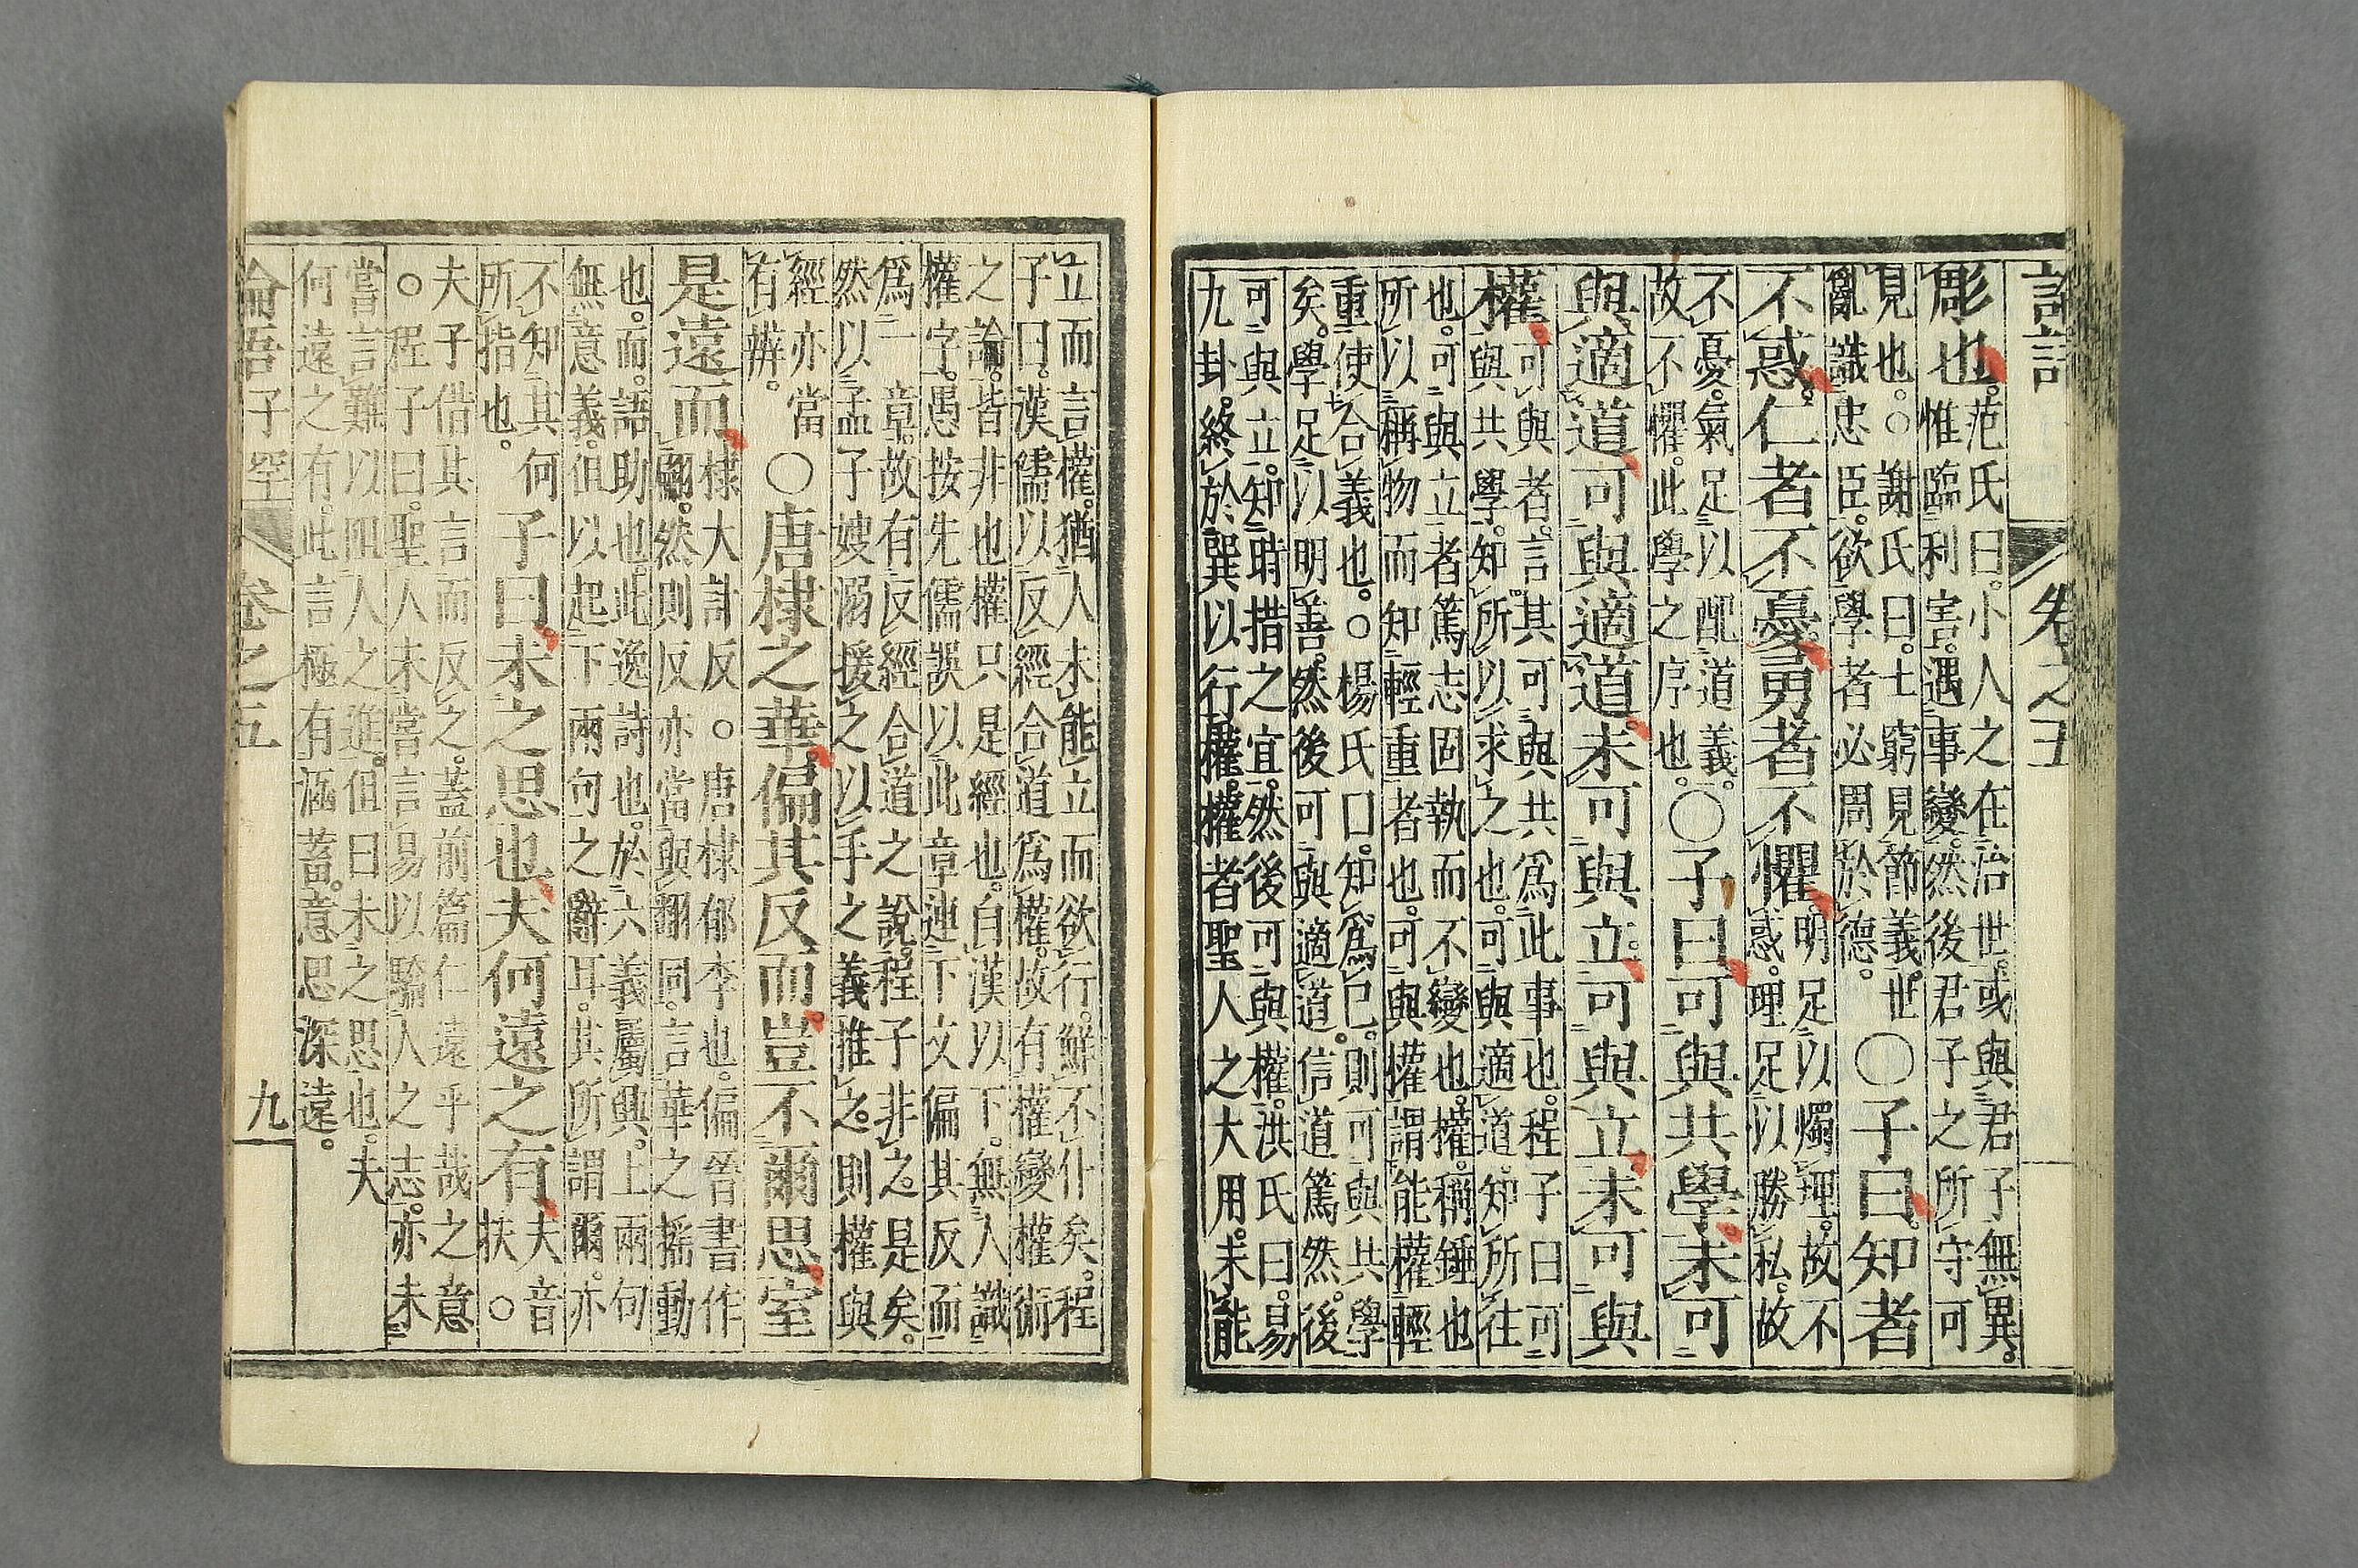 彫也。
范氏曰。小人之在治世。或與君子無異。
惟臨利害。遇事變。然後君子之所守可
見也。○謝氏曰。士窮見節義。世
亂識忠臣。欲學者必周於德。
○子曰。知者
不惑。仁者不憂。勇者不懼。
明足以燭理。故不
惑。理足以勝私。故
不憂。氣足以配道義。
故不懼。此學之序也。
○子曰可與共學未可
與適道可與適道。未可與立。可與立未可與
權。
可與者。言其可與共爲此事也。程子曰可
與共學。知所以求之也。可與適道。知所往
也。可與立者篤志固執而不變也。權。稱錘也
所以稱物而知輕重者也。可與權謂能權輕
重使合義也。○楊氏曰。知爲己。則可與共學
矣。學足以明善。然後可與適道。信道篤然。後
可與立。知時措之宜。然後可與權。洪氏曰。易
九卦。終於巽以行權。權者聖人之大用。未能
立而言權。猶人未能立而欲行。鮮不仆矣。程
子曰。漢儒以反經合道爲權。故有權變權術
之論。皆非也權只是經也。自漢以下。無人識
權字。愚按先儒誤以此章連下文偏其反而
爲一章。故有反經合道之說。程子非之。是矣。
然以孟子嫂溺援之以手之義推之。則權與
經亦當
有辨。
○唐棣之華。偏其反而。豈不爾思。室
是遠而
棣大計反。○唐棣郁李也。偏晉書作
翩。然則反亦當與翻同。言華之搖動
也。而。語助也。此逸詩也。於六義屬興。上兩句
無意義。但以起下兩句之辭耳。其所謂爾。亦
不知其何
所指也。
子曰。未之思也。夫何遠之有
夫音
扶○
夫子借其言而反之。蓋前篇仁遠乎哉之意
。程子曰。聖人未嘗言易以驕人之志。亦未
嘗言難以阻人之進。但曰未之思也。夫
何遠之有。此言極有涵蓄。意思深遠。
論語子罕 卷之五 九